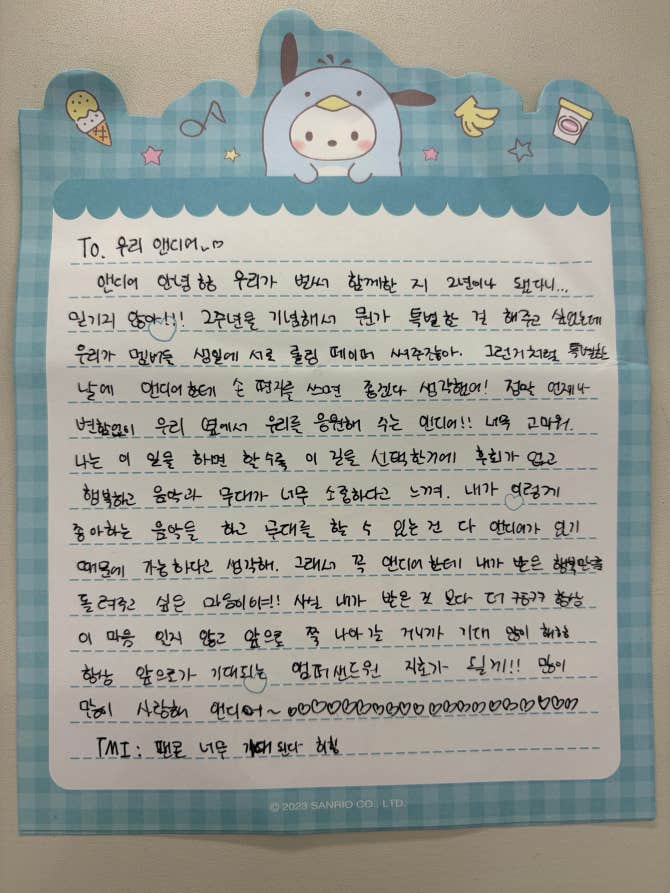 To. 우리 앤디어~♡
앤디어 안녕 항 우리가 벌써 함께한 지 2년이나 됐다니...
믿기지 않아!!! 2주년을 기념해서 뭔가 특별한 걸 해주고 싶었는데
우리가 멤버들 생일에 서로 롤링 페이퍼 써주잖아. 그런거처럼 특별한
날에 앤디어한테 손 편지를 쓰면 좋겠다 생각했어! 정말 언제나
변함없이 우리 옆에서 우리를 응원해 주는 앤디어!! 너무 고마워.
나는 이 일을 하면 할수록 이 길을 선택한거에 후회가 없고
행복하고 음악과 무대가 너무 소중하다고 느껴. 내가 이렇게
좋아하는 음악들 하고 무대를 할 수 있는건 다 앤디어가 있기
때문에 가능하다고 생각해. 그래서 꼭 앤디어한테 내가 받은 행복만큼
돌려주고 싶은 마음이야!! 사실 내가 받은 것 보다 더 ㅋㅋㅋㅋ 항상
이 마음 잊지 않고 앞으로 쭉 나아가는 거니까 기대 많이 해줘
항상 앞으로가 기대되는 엠퍼샌드원 지호가 될게!! 많이
많이 사랑해 앤디어~ ♡♡♡♡♡♡♡♡♡♡♡♡♡♡♡♡♡♡♡♡♡♡
TMI: 팬콘 너무 기대된다 히힣
© 2023 SANRIO CO., LTD.